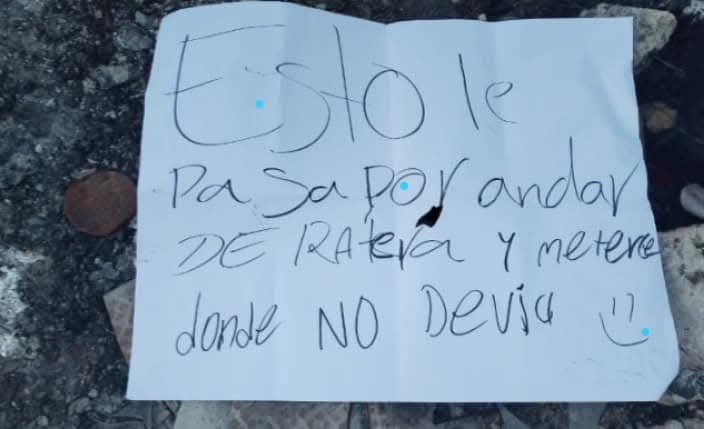 Esto le
pasa por andar
DE RAtera y meterse
donde NO Devia :)